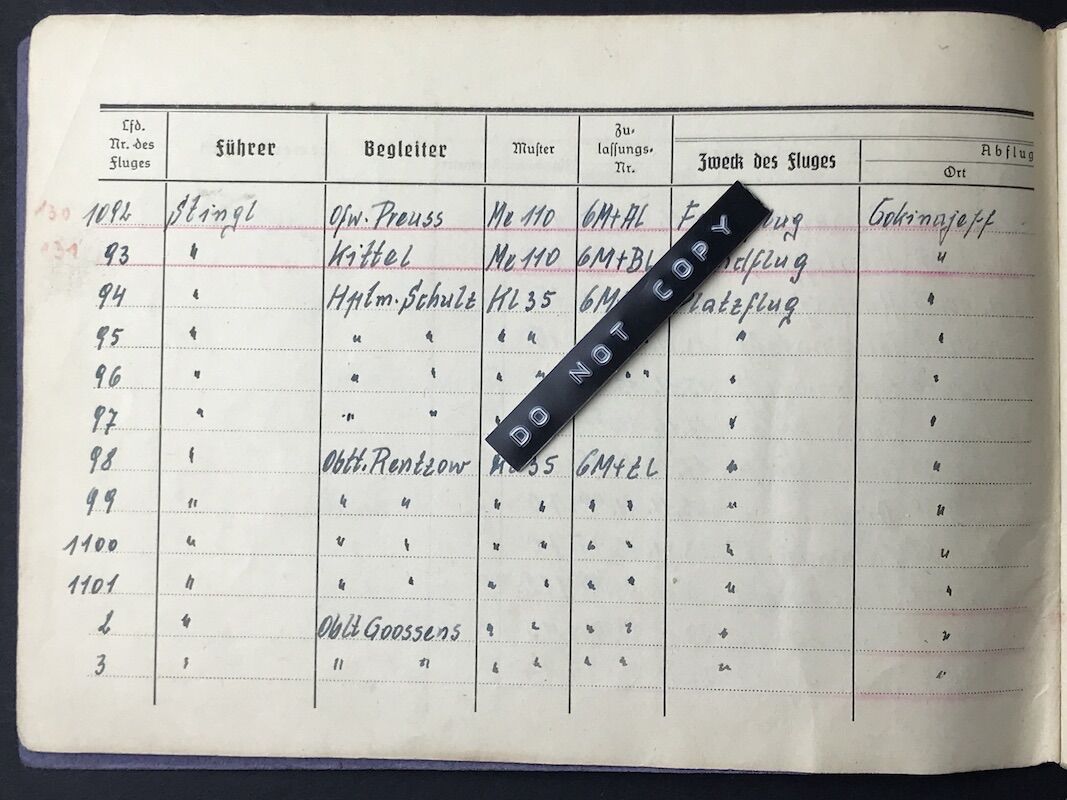 Lfd. Nr. des Fluges Führer Begleiter Muster Zu-lassungs-Nr. Zweck des Fluges Abflug Ort
130 1092 Stingl Ofw. Preuss Me 110 6M+AL Gokinajeff
131 93 " Kittel Me 110 6M+BL "
94 " Hptm. Schulz Kl 35 6M Platzflug "
95 " " " " " " "
96 " " " " " " " " "
97 " " " " " "
98 " Oblt. Rentzow Kl 35 6M+ZL " "
99 " " " " " " " " "
1100 " " " " " " " " "
1101 " " " " " " " " "
2 " Oblt Goossens " " " " " "
3 " " " " " " " " "
DO NOT COPY